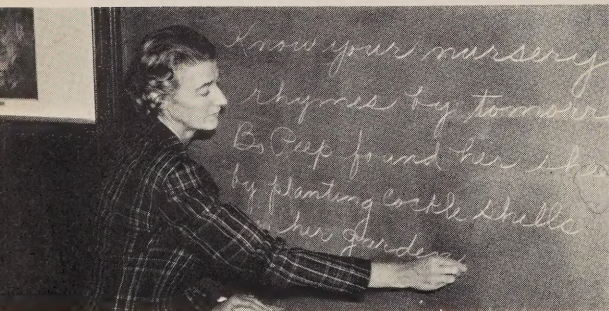 Know your nursery
rhymes by tomorr
Bo Peep found her shee
by planting cockle shells
in her garden